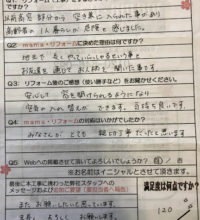 すか?
以前鳥 部分から 空き巣に入られた事があり
高齢者の1人暮らしが危険と感じました。
Q2 mamaリフォームに決めた理由は何ですか?
地元で長くやっていらっしゃるという事と
お友達を通じて
Q3 リフォーム後のご感想(使い勝手など)をお聞かせください。
安心して 窓を開けられるようになり
空気の入れ替えもできます。気持ち良いです。
Q4 mamaリフォームの対応はいかがでしたか?
みなさんが とても 親切丁寧だったと思います
Q5 Webへの掲載させて頂いてよろしいでしょうか? 可 / 否
※お名前はイニシャルとさせて頂きます。
最後に本工事に携わった弊社スタッフへの
満足度は何点ですか?
また お願いしたいと思っています。
よろしく お願いします。
120